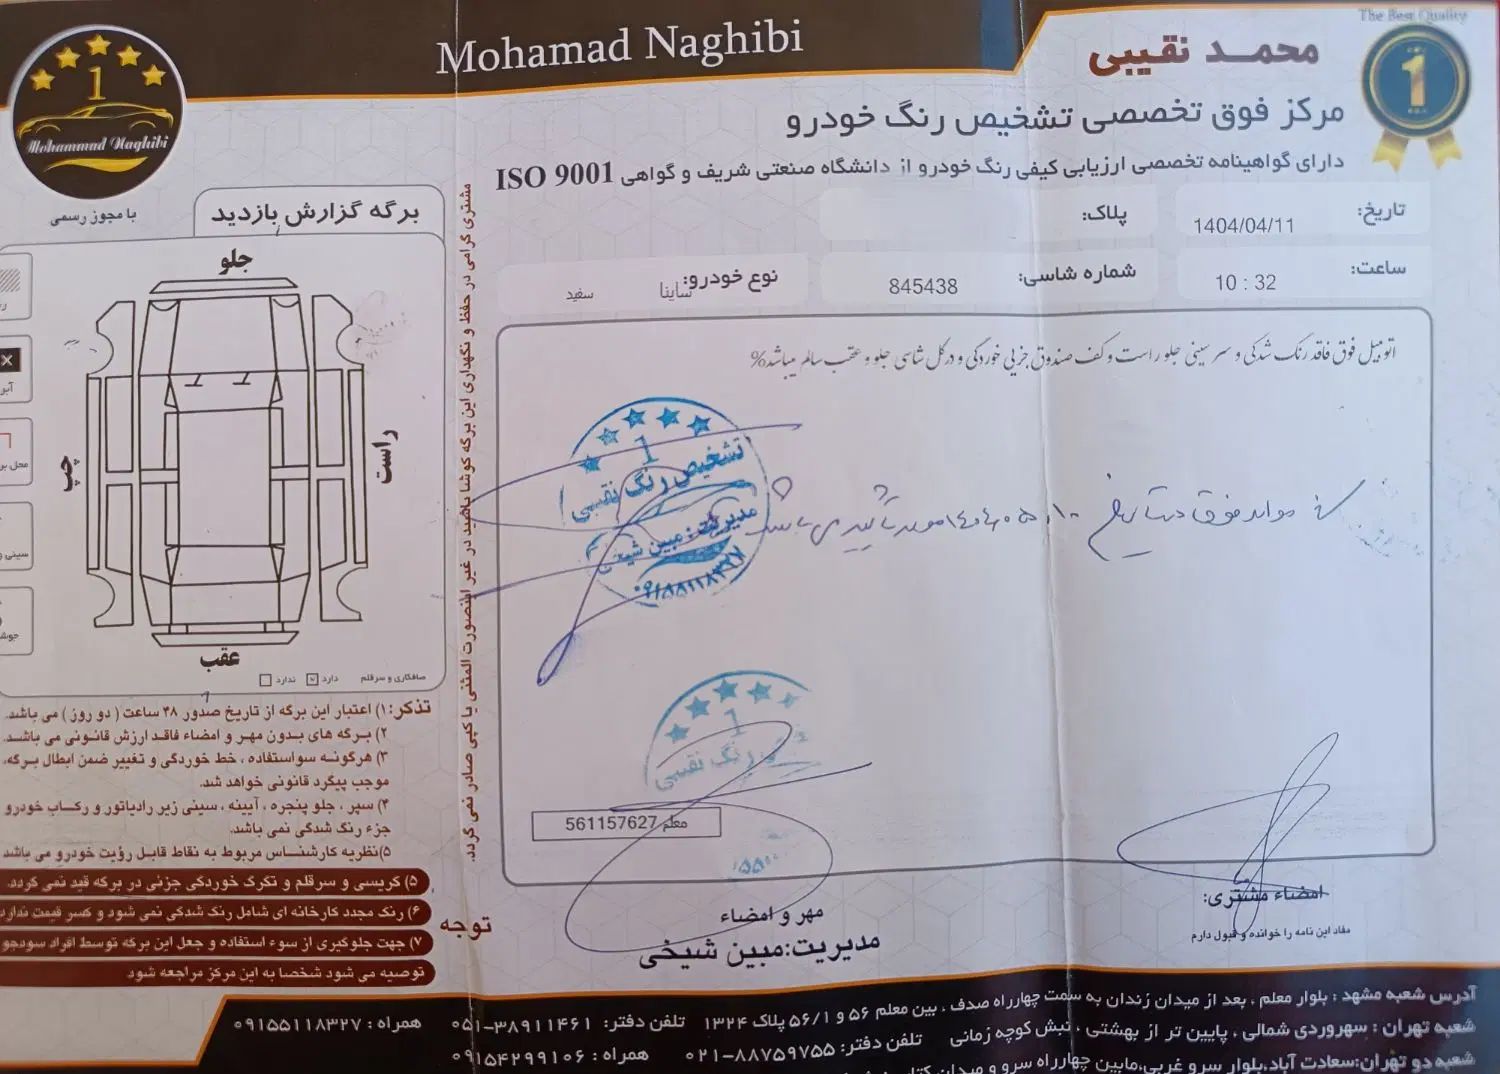 The Best Quality
1
Mohamad Naghibi
محمد نقیبی
1
Mohammad Naghibi
با مجوز رسمی
مرکز فوق تخصصی تشخیص رنگ خودرو
دارای گواهینامه تخصصی ارزیابی کیفی رنگ خودرو از دانشگاه صنعتی شریف و گواهی ISO 9001
تاریخ: 1404/04/11
پلاک:
ساعت: 10 : 32
شماره شاسی: 845438
نوع خودرو: ساینا سفید
اتومبیل فوق فاقد رنگ شدگی و سر سینی جلو راست و کف صندوق جزیی خوردگی و در کل شاسی جلو و عقب سالم میباشد%
موارد فوق
1
تشخیص رنگ نقیبی
مدیریت: مبین شیخی
۰۹۱۵۵۱۱۸۳۲۷
1
رنگ نقیبی
معلم 561157627
مهر و امضاء
مدیریت:مبین شیخی
امضاء مشتری:
مفاد این نامه را خوانده و قبول دارم
مشتری گرامی در حفظ و نگهداری این برگه کوشا باشید در غیر اینصورت المثنی یا کپی صادر نمی گردد.
برگه گزارش بازدید
جلو
راست
چپ
عقب
صافکاری و سرقلم دارد ندارد
تذکر: ۱) اعتبار این برگه از تاریخ صدور ۴۸ ساعت ( دو روز ) می باشد.
۲) برگه های بدون مهر و امضاء فاقد ارزش قانونی می باشد.
۳) هرگونه سواستفاده ، خط خوردگی و تغییر ضمن ابطال برگه،
موجب پیگرد قانونی خواهد شد.
۴) سپر ، جلو پنجره ، آیینه ، سینی زیر رادیاتور و رکاب خودرو
جزء رنگ شدگی نمی باشد.
۵)نظریه کارشناس مربوط به نقاط قابل رؤیت خودرو می باشد
توجه
۵) گریسی و سرقلم و تگرگ خوردگی جزئی در برگه قید نمی گردد.
۶) رنگ مجدد کارخانه ای شامل رنگ شدگی نمی شود و کسر قیمت ندارد
۷) جهت جلوگیری از سوء استفاده و جعل این برگه توسط افراد سودجو
توصیه می شود شخصا به این مرکز مراجعه شود
آدرس شعبه مشهد : بلوار معلم ، بعد از میدان زندان به سمت چهارراه صدف ، بین معلم ۵۶ و ۵۶/۱ پلاک ۱۳۲۴ تلفن دفتر: ۳۸۹۱۱۴۶۱-۰۵۱ همراه : ۰۹۱۵۵۱۱۸۳۲۷
شعبه تهران : سهروردی شمالی ، پایین تر از بهشتی ، نبش کوچه زمانی تلفن دفتر: ۸۸۷۵۹۷۵۵-۰۲۱ همراه : ۰۹۱۵۴۲۹۹۱۰۶
شعبه دو تهران:سعادت آباد،بلوار سرو غربی،مابین چهارراه سرو و میدان